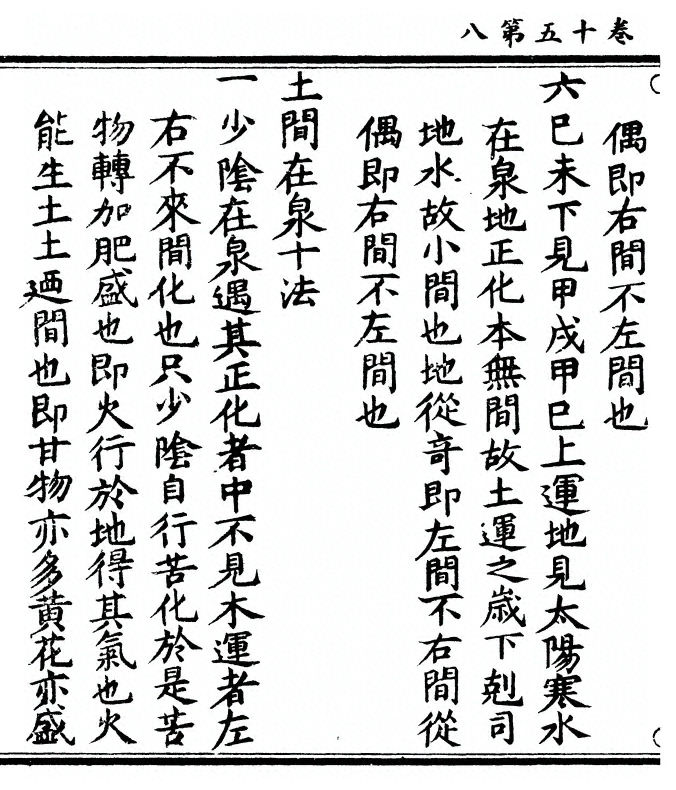 卷十五第八
偶即右間不左間也
六巳未下見甲戌甲巳上運地見太陽寒水
在泉地正化本無間故土運之歲下剋司
地水故小間也地從竒即左間不右間從
偶即右間不左間也
土間在泉十法
一少陰在泉遇其正化者中不見木運者左
右不來間化也只少陰自行苦化於是苦
物轉加肥盛也即火行於地得其氣也火
能生土土迺間也即甘物亦多黄花亦盛